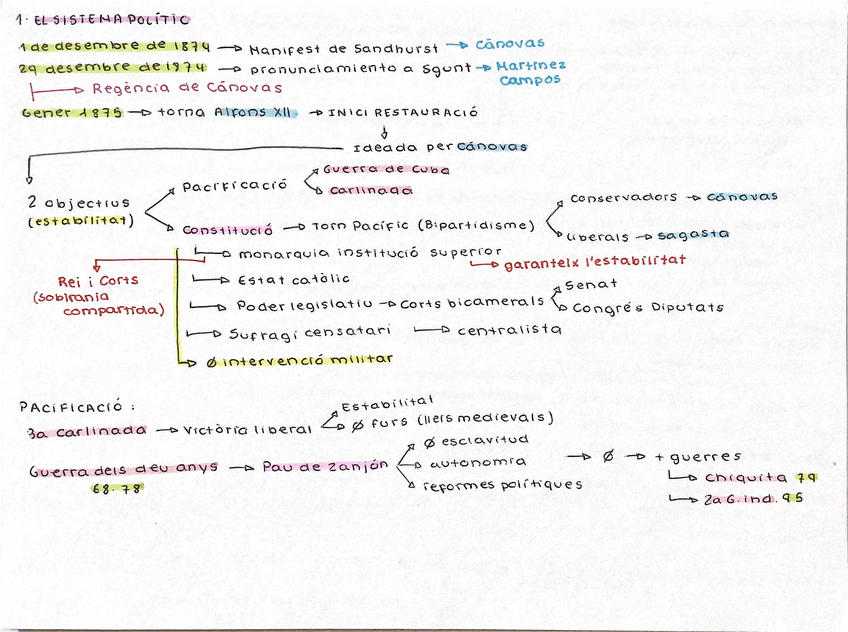 1. EL SISTEMA POLÍTIC
1 de desembre de 1874 → Manifest de Sandhurst → Cánovas
29 desembre de 1974 → pronunciamiento a Sgunt → Martínez Campos
→ Regència de Cánovas
Gener 1875 → torna Alfons XII → INICI RESTAURACIÓ
Ideada per cánovas
2 objectius (estabilitat)
Pacificació
Guerra de Cuba
Carlinada
Constitució → Torn Pacífic (Bipartidisme)
conservadors → cánovas
liberals → sagasta
→ monarquia institució superior
→ garanteix l'estabilitat
Rei i Corts (sobirania compartida)
→ Estat catòlic
→ Poder legislatiu → Corts bicamerals
Senat
Congrés Diputats
→ Sufragi censatari → centralista
→ Ø intervenció militar
PACIFICACIÓ:
3a Carlinada → Victòria liberal
Estabilital
Ø furs (lleis medievals)
Guerra dels deu anys → Pau de Zanjón
68-78
Ø esclavitud
autonomia
reformes polítiques
→ Ø → + guerres
→ chiquita 79
→ 2a G.ind. 95